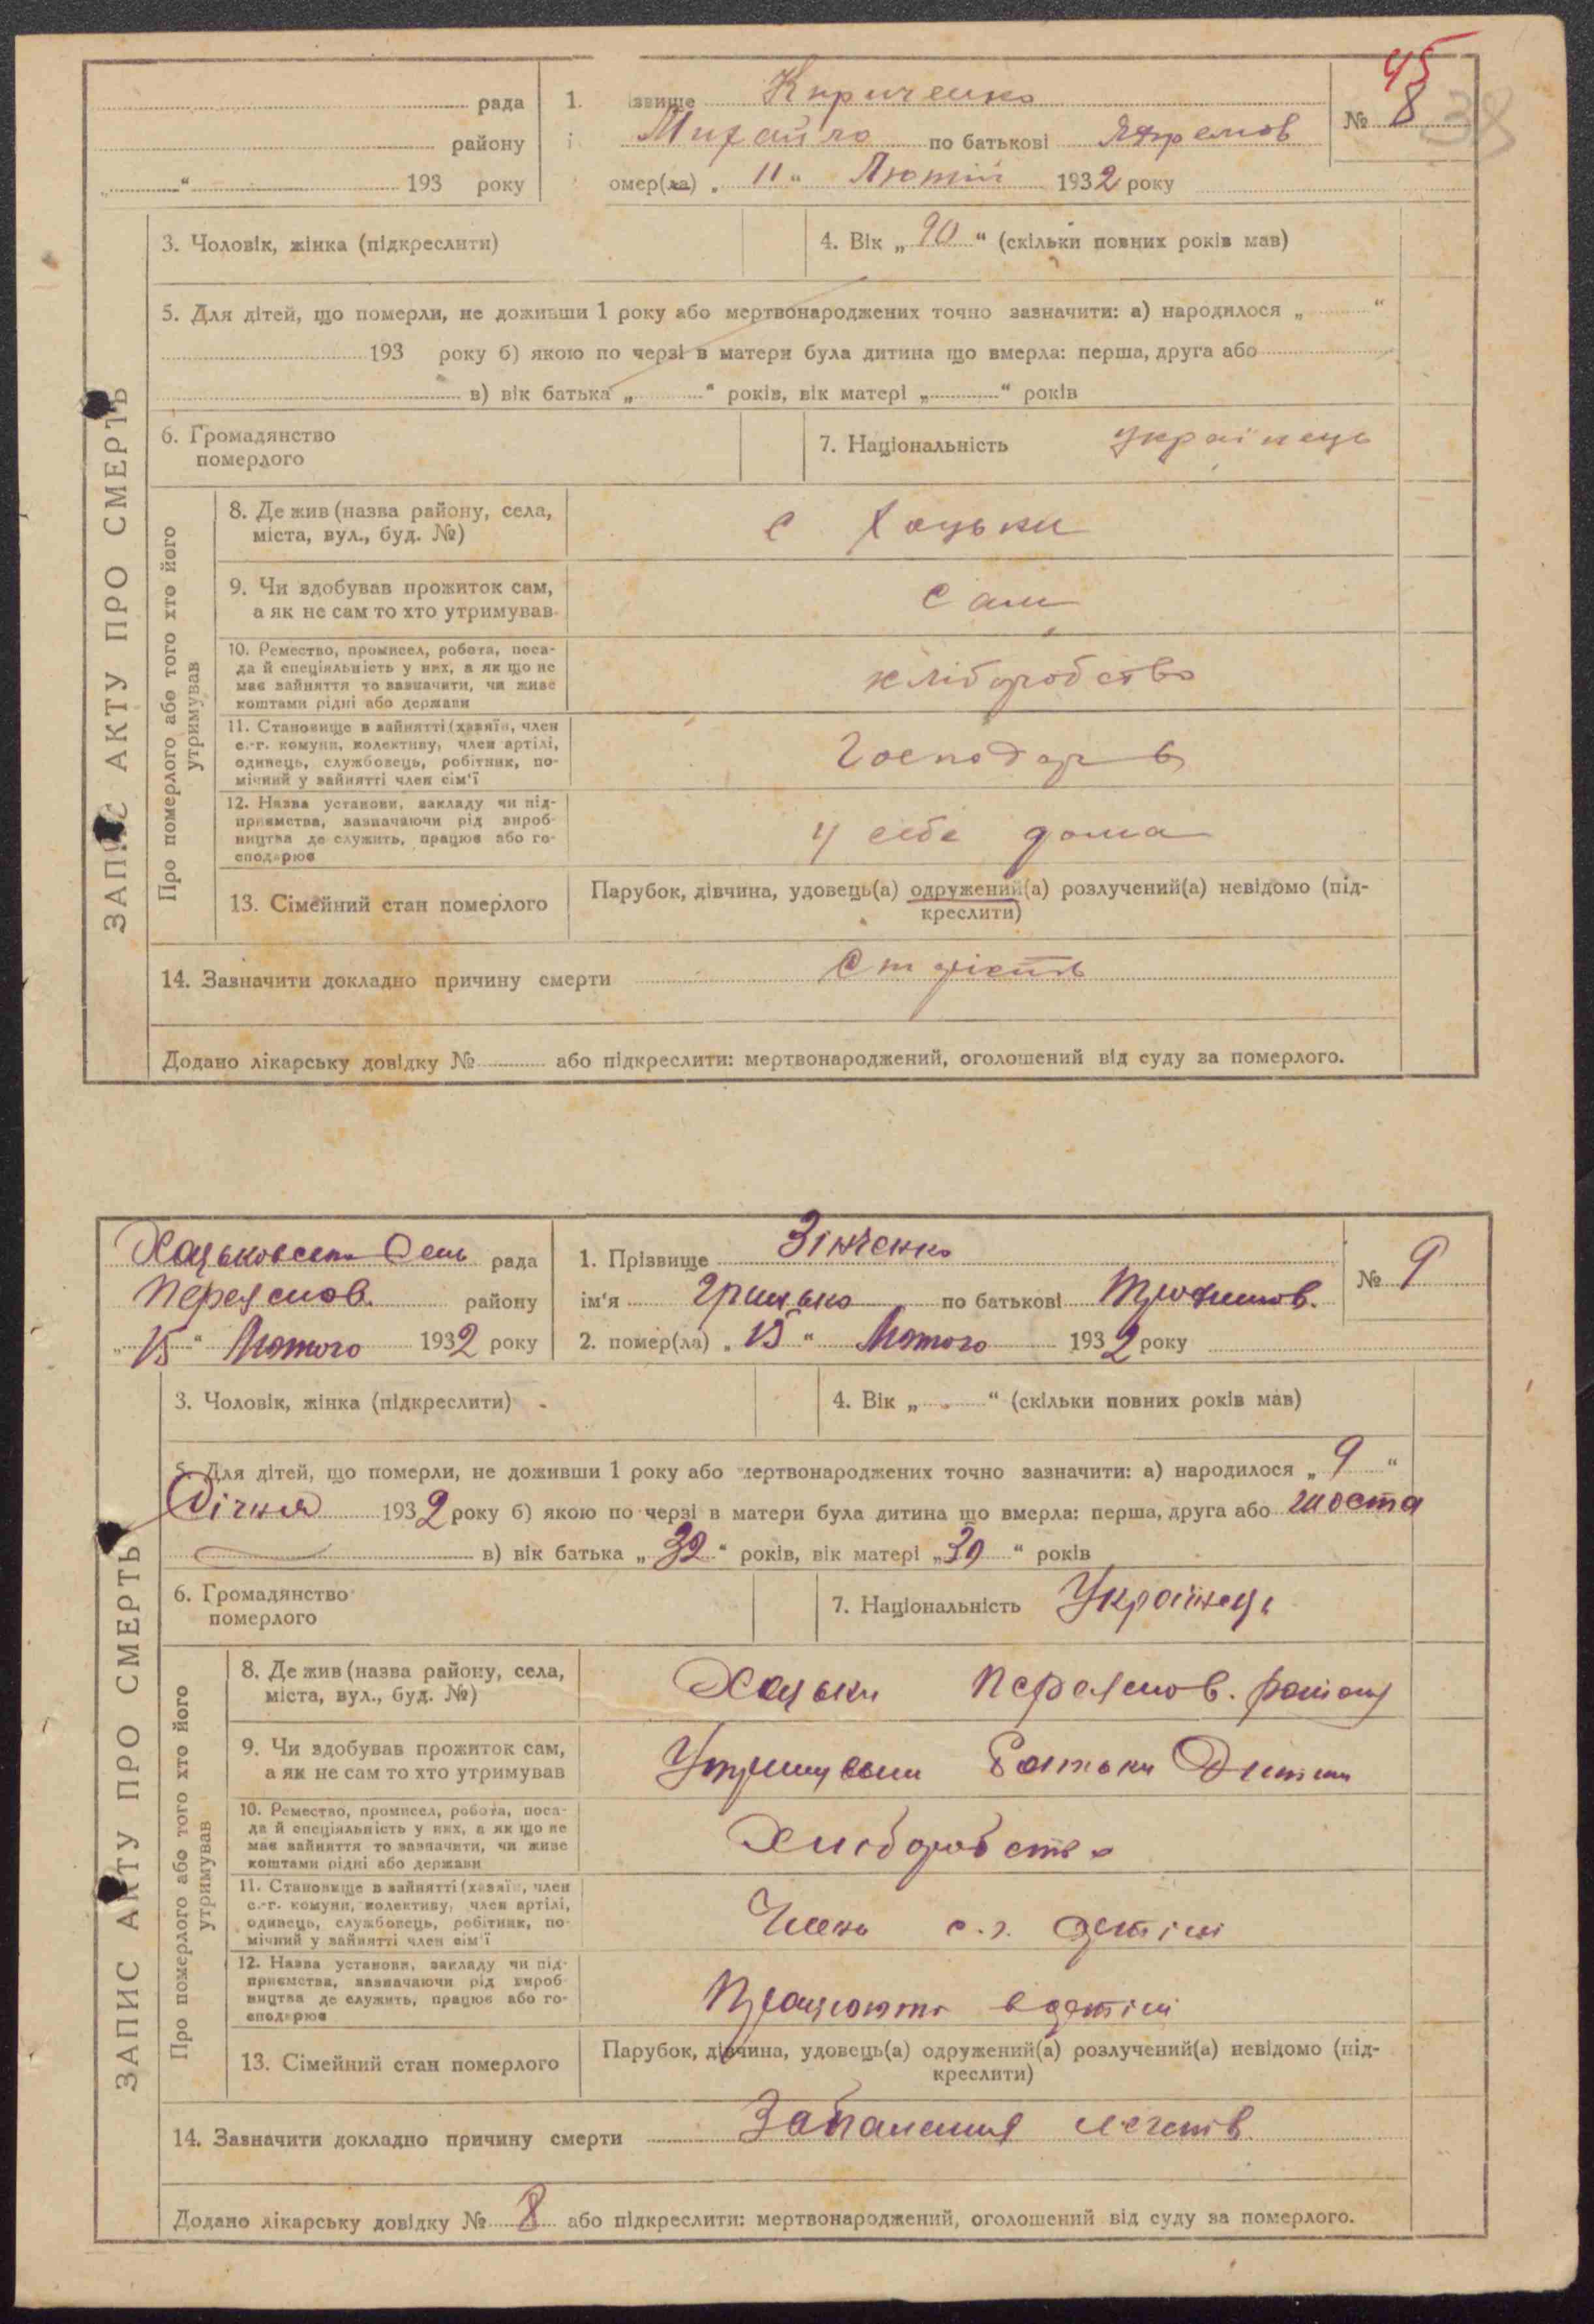 45
рада
1. ізвище Кириченко
№ 8
38
району
і Михайло по батькові Яхремов
„ “ 193 року
омер(ла) „ 11 “ Лютій 1932 року
3. Чоловік, жінка (підкреслити)
4. Вік „ 90 “ (скільки повних років мав)
5. Для дітей, що померли, не доживши 1 року або мертвонароджених точно зазначити: а) народилося „ “
193 року б) якою по черзі в матери була дитина що вмерла: перша, друга або
в) вік батька „ “ років, вік матері „ “ років
6. Громадянство
померлого
7. Національність українець
ЗАПИС АКТУ ПРО СМЕРТЬ
Про померлого або того хто його
утримував
8. Де жив (назва району, села,
міста, вул., буд. №)
с Хоцьки
9. Чи здобував прожиток сам,
а як не сам то хто утримував
сам
10. Ремество, промисел, робота, поса-
да й спеціяльність у них, а як що не
має зайняття то зазначити, чи живе
коштами рідні або держави
хліборобство
11. Становище в зайнятті (хазяїн, член
с.-г. комуни, колективу, член артілі,
одинець, службовець, робітник, по-
мічний у зайнятті член сім'ї
Господарь
12. Назва установи, закладу чи під-
приємства, зазначаючи рід вироб-
ництва де служить, працює або го-
сподарює
У себе дома
13. Сімейний стан померлого
Парубок, дівчина, удовець(а) одружений(а) розлучений(а) невідомо (під-
креслити)
14. Зазначити докладно причину смерти Старість
Додано лікарську довідку № або підкреслити: мертвонароджений, оголошений від суду за померлого.
Хацьковська Сель рада
1. Прізвище Зінченко
№ 9
Переяслов. району
ім'я Грицько по батькові Трохимов.
„ 15 “ Лютого 1932 року
2. помер(ла) „ 15 “ Лютого 1932 року
3. Чоловік, жінка (підкреслити)
4. Вік „ “ (скільки повних років мав)
5. Для дітей, що померли, не доживши 1 року або мертвонароджених точно зазначити: а) народилося „ 9 “
Січня 1932 року б) якою по черзі в матери була дитина що вмерла: перша, друга або шоста
в) вік батька „ 32 “ років, вік матері „ 30 “ років
6. Громадянство
померлого
7. Національність Українець
ЗАПИС АКТУ ПРО СМЕРТЬ
Про померлого або того хто його
утримував
8. Де жив (назва району, села,
міста, вул., буд. №)
Хацьки Переяслов. району
9. Чи здобував прожиток сам,
а як не сам то хто утримував
Утримували Батьки
10. Ремество, промисел, робота, поса-
да й спеціяльність у них, а як що не
має зайняття то зазначити, чи живе
коштами рідні або держави
Хліборобство
11. Становище в зайнятті (хазяїн, член
с.-г. комуни, колективу, член артілі,
одинець, службовець, робітник, по-
мічний у зайнятті член сім'ї
Член с.г. артілі
12. Назва установи, закладу чи під-
приємства, зазначаючи рід вироб-
ництва де служить, працює або го-
сподарює
Працюють в артілі
13. Сімейний стан померлого
Парубок, дівчина, удовець(а) одружений(а) розлучений(а) невідомо (під-
креслити)
14. Зазначити докладно причину смерти Запалення легенів
Додано лікарську довідку № 8 або підкреслити: мертвонароджений, оголошений від суду за померлого.